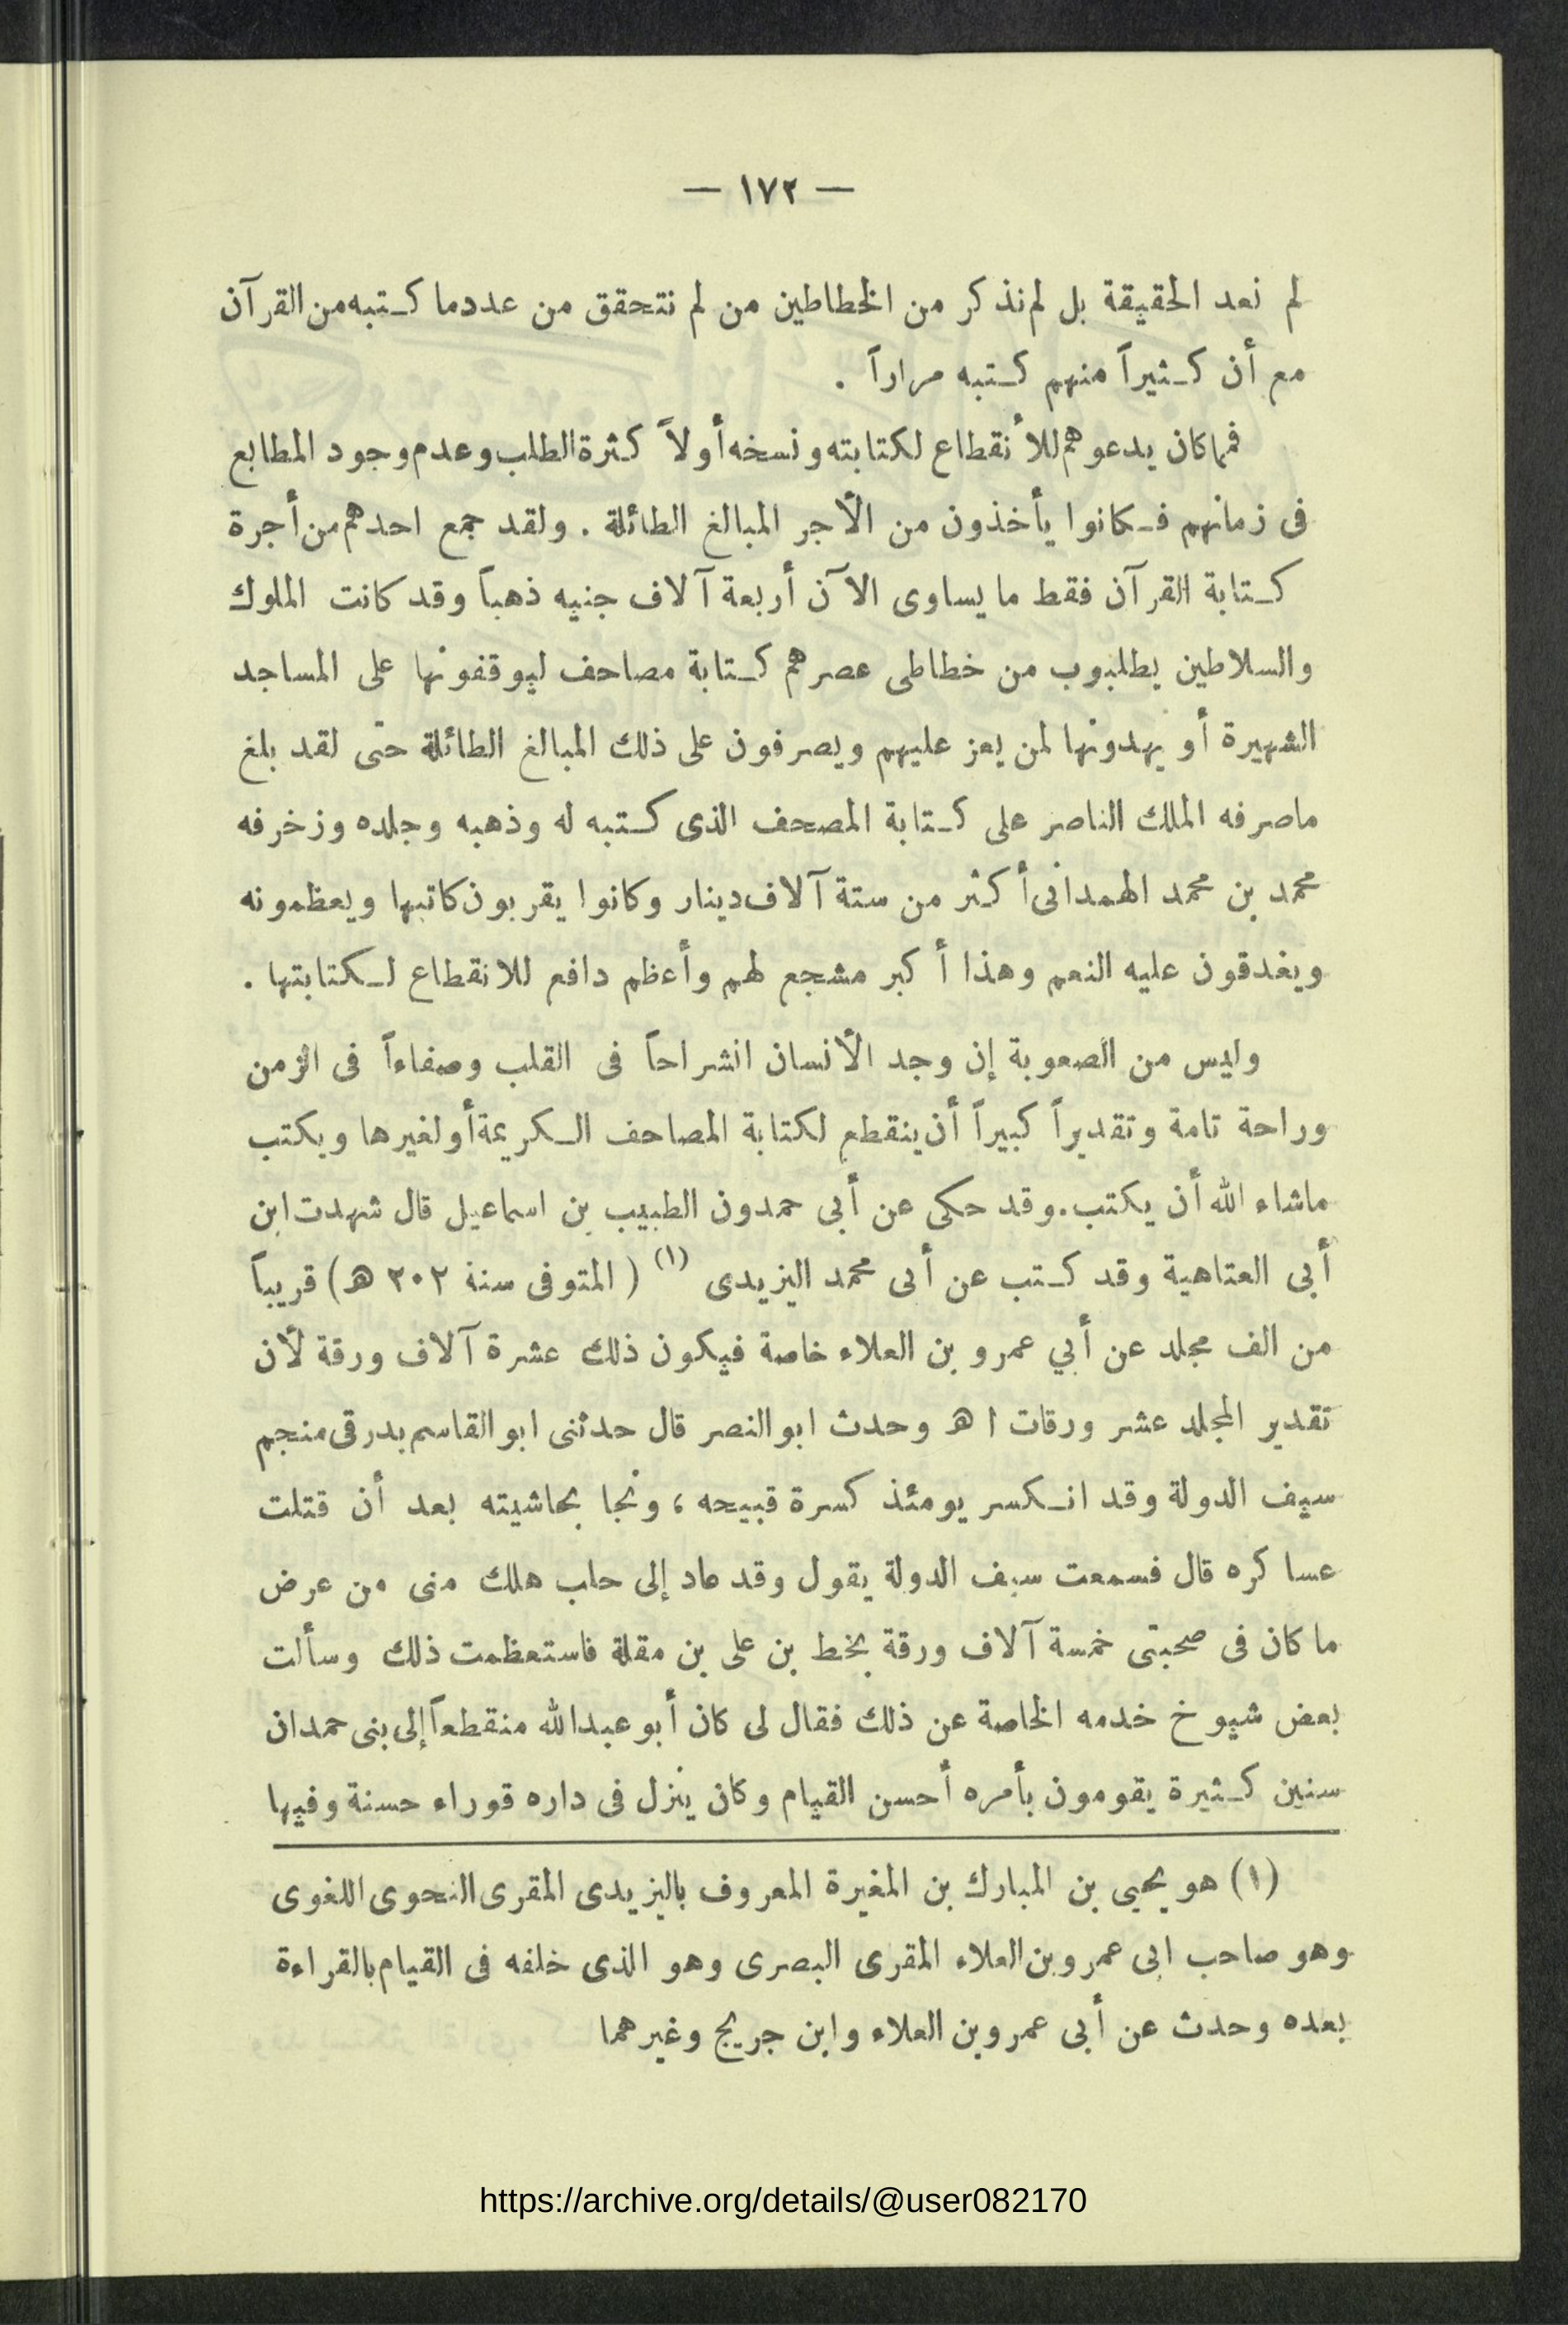 — ١٧٢ —
لم نعد الحقيقة بل لم نذكر من الخطاطين من لم نتحقق من عدد ما كتبه من القرآن
مع أن كثيراً منهم كتبه مراراً .
فما كان يدعوهم للأنقطاع لكتابته ونسخه أولاً كثرة الطلب وعدم وجود المطابع
فى زمانهم فكانوا يأخذون من الأجر المبالغ الطائلة . ولقد جمع احدهم من أجرة
كتابة القرآن فقط ما يساوى الآن أربعة آلاف جنيه ذهباً وقد كانت الملوك
والسلاطين يطلبوب من خطاطى عصرهم كتابة مصاحف ليوقفونها على المساجد
الشهيرة أو يهدونها لمن يعز عليهم ويصرفون على ذلك المبالغ الطائلة حتى لقد بلغ
ماصرفه الملك الناصر على كتابة المصحف الذى كتبه له وذهبه وجلده وزخرفه
محمد بن محمد الهمدانى أكثر من ستة آلاف دينار وكانوا يقربون كاتبها ويعظمونه
ويغدقون عليه النعم وهذا أكبر مشجع لهم وأعظم دافع للانقطاع لكتابتها .
وليس من الصعوبة إن وجد الأنسان انشراحاً فى القلب وصفاءاً فى الزمن
وراحة تامة وتقديراً كبيراً أن ينقطع لكتابة المصاحف الكريمة أو لغيرها ويكتب
ماشاء الله أن يكتب . وقد حكى عن أبى حمدون الطبيب بن اسماعيل قال شهدت ابن
أبى العتاهية وقد كتب عن أبى محمد اليزيدى (١) ( المتوفى سنة ٢٠٢ هـ ) قريباً
من الف مجلد عن أبي عمرو بن العلاء خاصة فيكون ذلك عشرة آلاف ورقة لأن
تقدير المجلد عشر ورقات ا هـ وحدث ابو النصر قال حدثنى ابو القاسم بدرقى منجم
سيف الدولة وقد انكسر يومئذ كسرة قبيحه ، ونجا بحاشيته بعد أن قتلت
عساكره قال فسمعت سيف الدولة يقول وقد عاد إلى حلب هلك منى من عرض
ما كان فى صحبتى خمسة آلاف ورقة بخط بن على بن مقلة فاستعظمت ذلك وسألت
بعض شيوخ خدمه الخاصة عن ذلك فقال لى كان أبو عبدالله منقطعاً إلى بنى حمدان
سنين كثيرة يقومون بأمره أحسن القيام وكان ينزل فى داره قوراء حسنة وفيها
(١) هو يحيى بن المبارك بن المغيرة المعروف باليزيدى المقرى النحوى اللغوى
وهو صاحب ابى عمرو بن العلاء المقرى البصرى وهو الذى خلفه فى القيام بالقراءة
بعده وحدث عن أبى عمرو بن العلاء وابن جريج وغيرهما
https://archive.org/details/@user082170